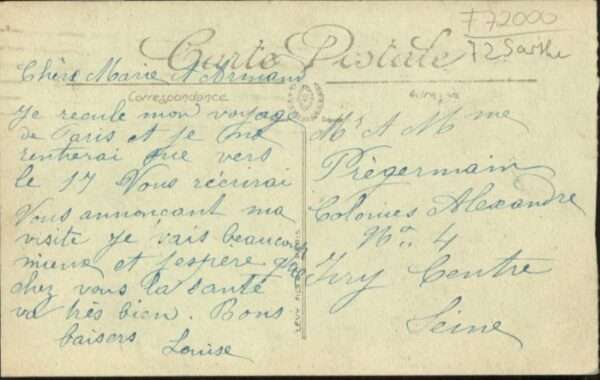 F72000
72 Sarthe
Carte Postale
Chère Marie & Armand
Correspondance
Je recule mon voyage
de Paris et je ne
rentrerai que vers
le 17 Vous récrirai
Vous annonçant ma
visite je vais beaucoup
mieux et j'espère que
chez vous la santé
va très bien. Bons
baisers Louise
Mr & Mme
Prégermain
Colonies Alexandre
No. 4
Ivry Centre
Seine